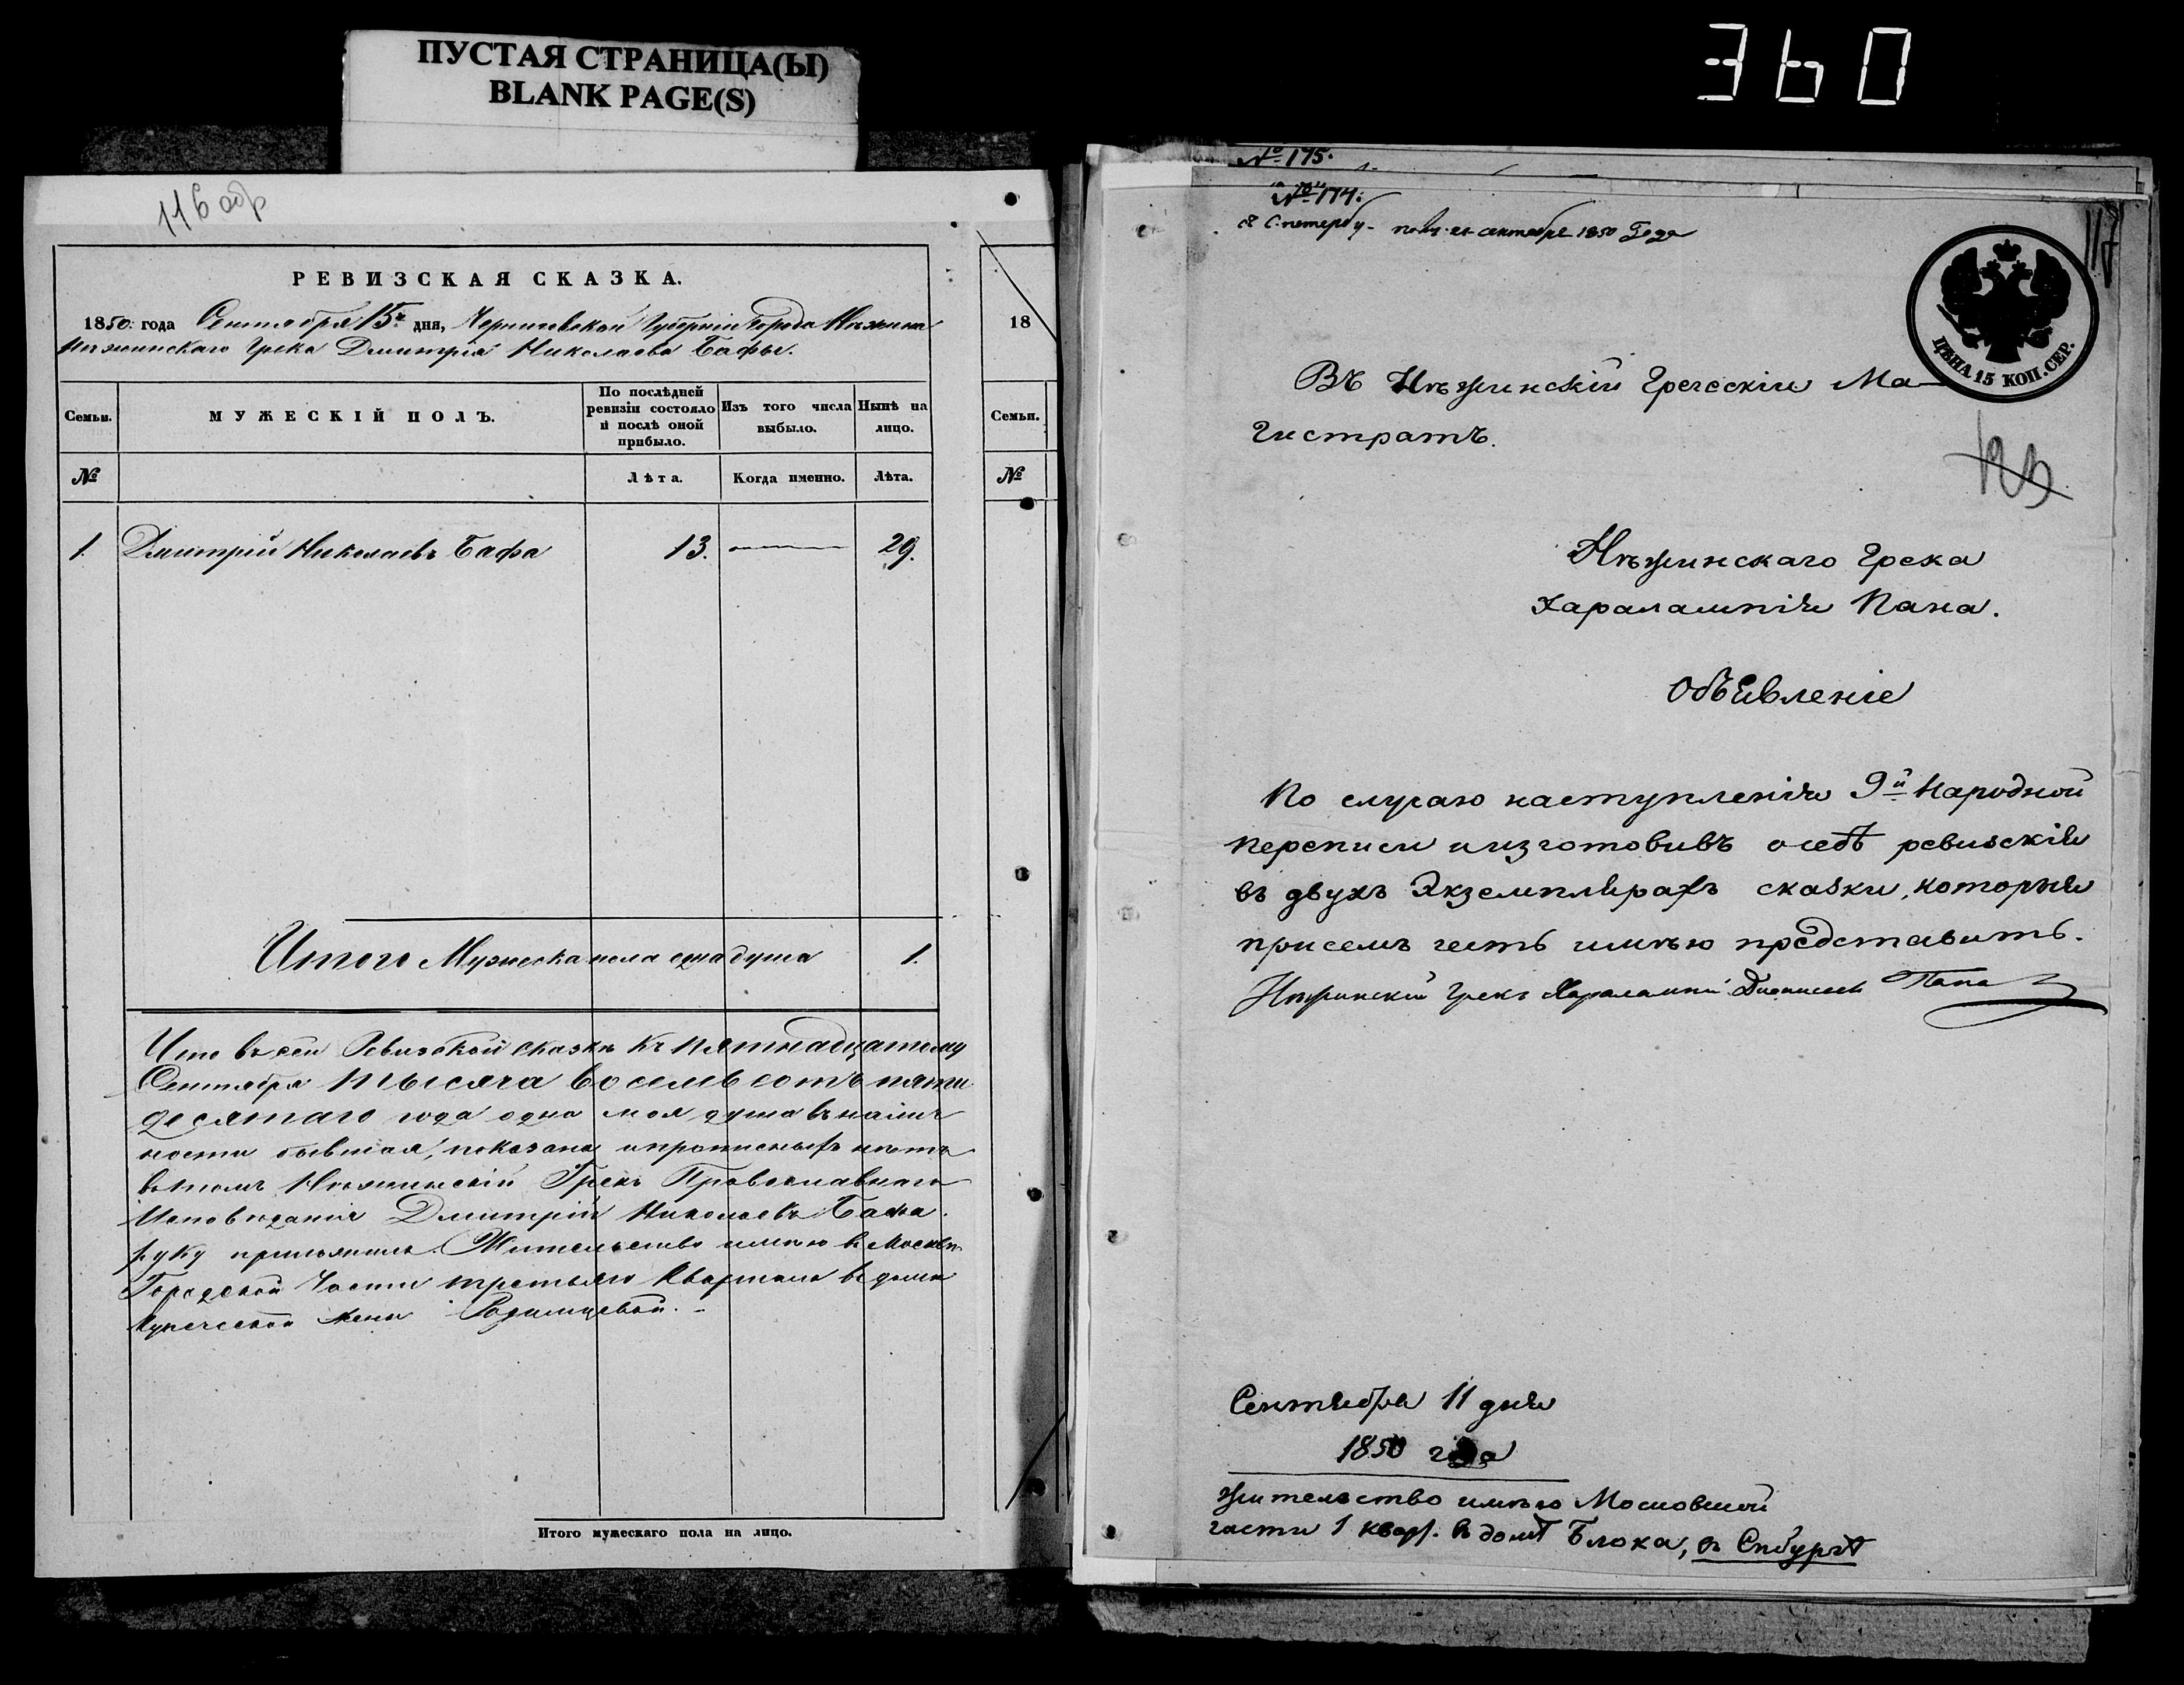 ПУСТАЯ СТРАНИЦА(Ы)
BLANK PAGE(S)
360
116 обр
РЕВИЗСКАЯ СКАЗКА.
1850: года Сентября 15го дня, Черниговской Губерніи города Нѣжина
Нѣжинскаго Грека Дмитрія Николаева Бафы.
Семьи.
МУЖЕСКІЙ ПОЛЪ.
По послѣдней ревизіи состояло и послѣ оной прибыло.
Изъ того числа выбыло.
Нынѣ на лицо.
№
Лѣта.
Когда именно.
Лѣта.
1.
Дмитрій Николаевъ Бафа
13.
29.
Итого Мужеска пола одна душа
1.
Что въ сей Ревизской сказкѣ къ пятнадцатому
Сентября тысяча восемьсотъ пяти
десятаго года одна моя душа въ налич
ности бывшая, показана и прописныхъ нѣтъ
въ томъ Нѣжинскій Грекъ Православнаго
Исповѣданія Дмитрій Николаевъ Бафа.
руку приложилъ. Жительство имѣю въ Москвѣ
Городской Части третьяго Квартала въ домѣ
Купеческой жены
Итого мужескаго пола на лицо.
18
Семьи.
№
№ 175.
№ 174:
съ С.петербу- полу. 21 сентября 1850 Года
117
ЦѢНА 15 КОП. СЕР.
Въ Нѣжинскій Греческій Ма-
гистратъ.
123
Нѣжинскаго Грека
Харалампія Пана.
Объявленіе
По случаю наступленія 9й Народной
переписи и изготовивъ о себѣ ревизскія
въ двухъ Экземплярахъ сказки, которыя
присемъ честь имѣю представить.
Нѣжинскій Грекъ Харалампій Пана
Сентября 11 дня
1850 года
Жительство имѣю Московской
части 1 кварт. въ домѣ Блока, въ Спбургѣ